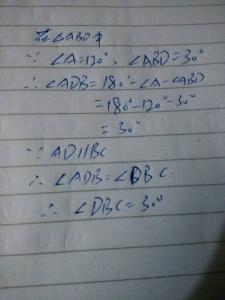 在△ABD中
∵ ∠A=120°、∠ABD=30°
∴ ∠ADB=180°-∠A-∠ABD
=180°-120°-30°
=30°
∵ AD∥BC
∴ ∠ADB=∠DBC
∴ ∠DBC=30°